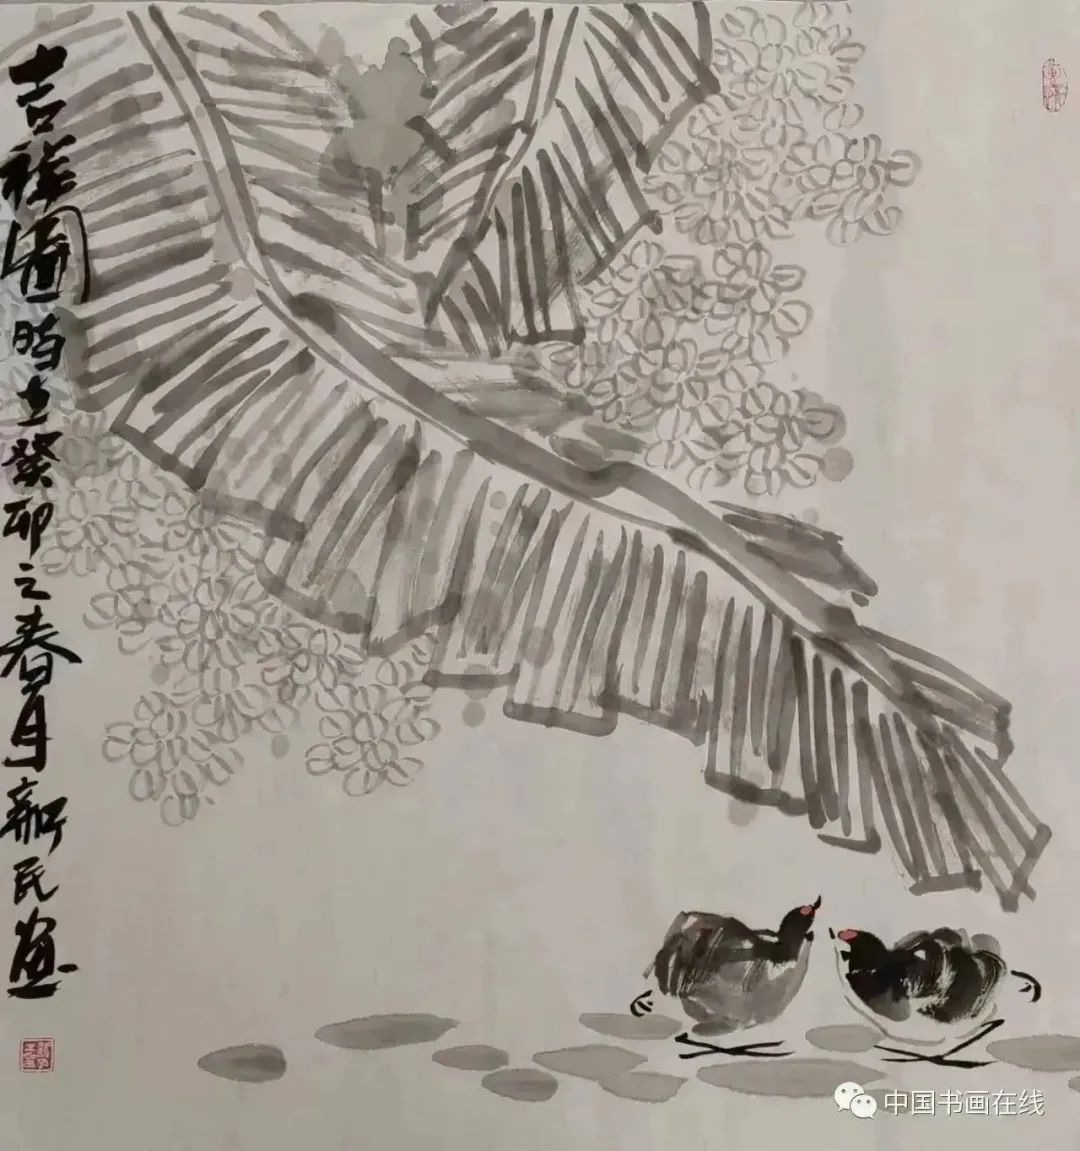 吉祥圖时在癸卯之春月新民画
中国书画在线